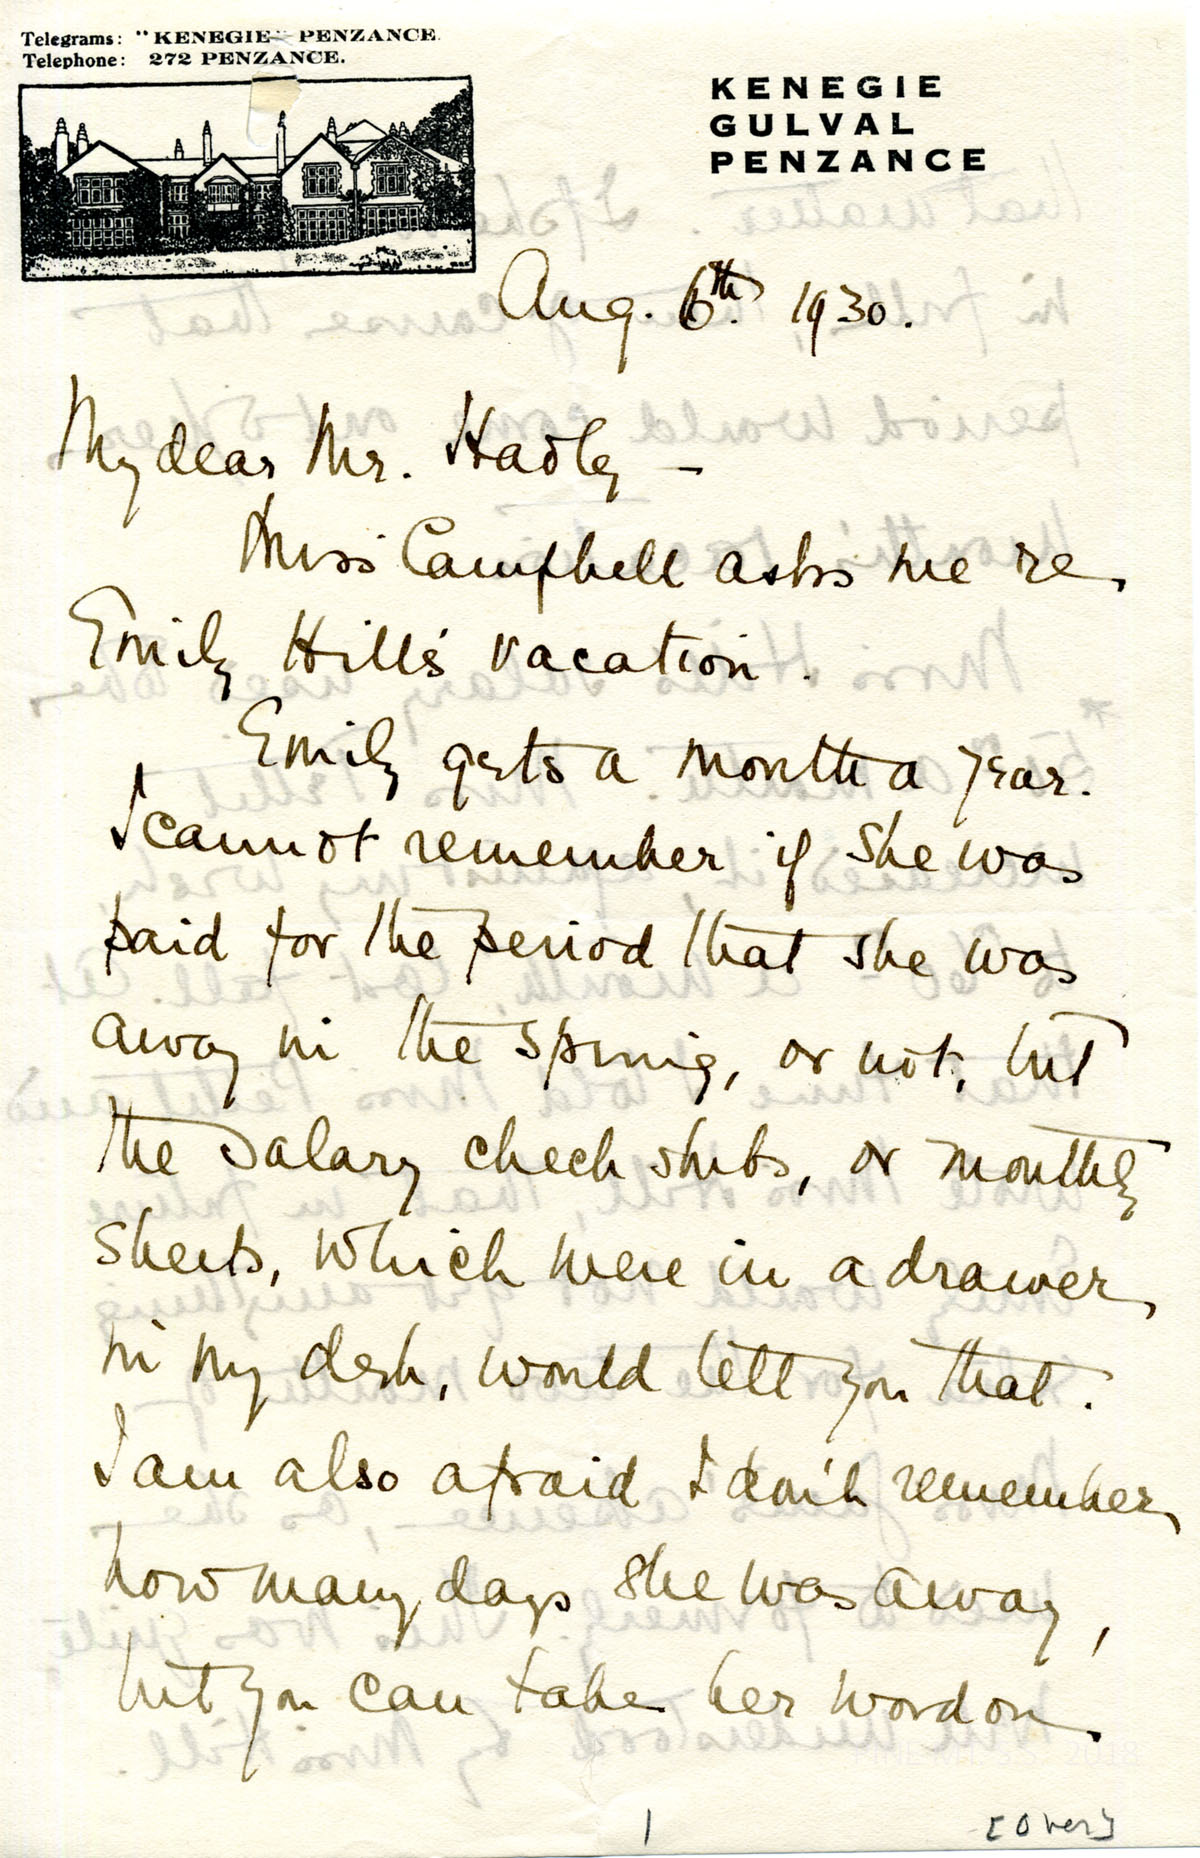 Telegrams: "KENEGIE" PENZANCE.
Telephone: 272 PENZANCE.
KENEGIE
GULVAL
PENZANCE
Aug. 6th. 1930.
My dear Mr. Hadley –
Miss Campbell asks me re
Emily Hill's vacation.
Emily gets a month a year.
I cannot remember if she was
paid for the period that she was
away in the Spring, or not, but
the salary check stubs, or monthly
sheets, which were in a drawer
in my desk, would tell you that.
I am also afraid I don't remember
how many days she was away,
but you can take her word on
1
[Over]